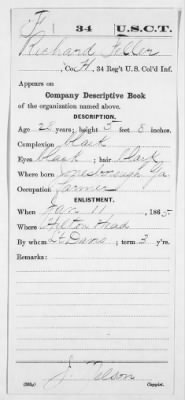 F | 34 | U.S.C.T.
Richard Feller
Co. H, 34 Reg't U. S. Col'd Inf.
Appears on
Company Descriptive Book
of the organization named above.
DESCRIPTION.
Age 28 years; height 5 feet 8 inches.
Complexion black
Eyes black; hair black
Where born Jonesborough Ga
Occupation Farmer
ENLISTMENT.
When Jan 11, 1865
Where Hilton Head
By whom Lt Davis; term 3 y'rs.
Remarks:
J. Nelson
Copyist.